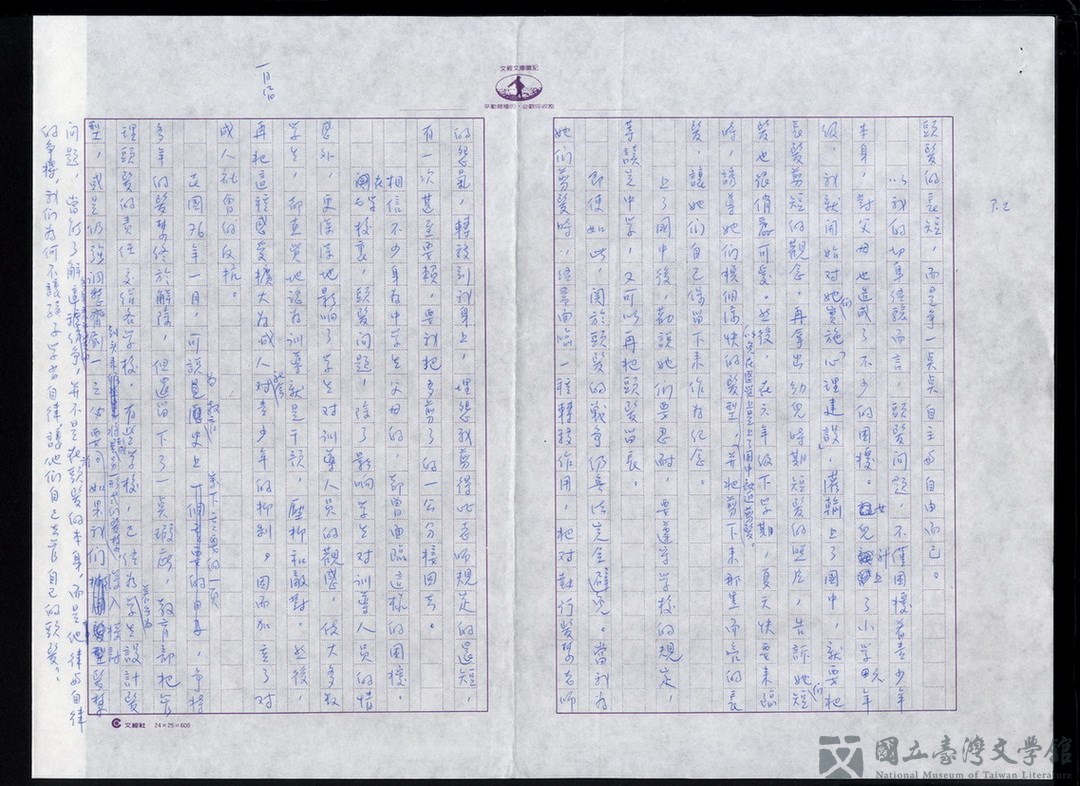 P.2
頭髮的長短,而是爭一點點自主與自由而已。
以我的切身經驗而言,頭髮問題,不僅困擾着青少年
本身,對父母也造成了不少的困擾。女兒上了小學六年
級,我就開始對她們實施「心理建設」,灌輸上了國中,就要把
長髮剪短的觀念。再拿出幼兒時期短髮的照片,告訴她們短
髮也很俏麗可愛。然後,在六年級下學期,夏天快要來臨
時,誘導她們換個涼快的髮型,以免在感覺上是上了國中被迫剪髮。並把剪下來那黑而亮的長
髮,讓她們自己保留下來作為紀念。
上了國中後,勸說她們要忍耐,要遵守學校的規定,
等讀完中學,又可以再把頭髮留長。
即使如此,關於頭髮的戰爭仍無法完全避免。當我為
她們剪髮時,經常面臨一種轉移作用,把對執行髮禁老師
的怨氣,轉移到我身上,埋怨我剪得比老師規定的還短,
有一次甚至耍賴,要我把多剪了的一公分接回去。
相信不少身為中學生父母的,都曾面臨這樣的困擾。
在學校裏,頭髮問題,除了影響學生對訓導人員的情
感外,更深深地影響了學生對訓導人員的觀感,使大多數
學生,都直覺地認為訓導就是干預,壓抑和敵對。然後
再把這種感受擴大為成人社會對青少年的抑制。因而加重了對
成人社會的反抗。
民國76年一月,可說是為教育史上寫下重要的一頁,爭擾
多年的髮禁終於解除,但還留下了一點瑕疵,教育部把管
理頭髮的責任交給各學校,有些學校,已經為學生設計髮
型,或是仍強調整齊劃一之必要。如果我們
問題,當能了解這場紛爭,並不是在頭髮的本身,而是他律與自律
的爭擾,我們為何不讓孩子學習自律,讓他們自己去管自己的頭髮?
一月廿日
文經文庫雜記
辛勤播種的,必歡呼收割
文經社 24×25=600
國立臺灣文學館
National Museum of Taiwan Literature